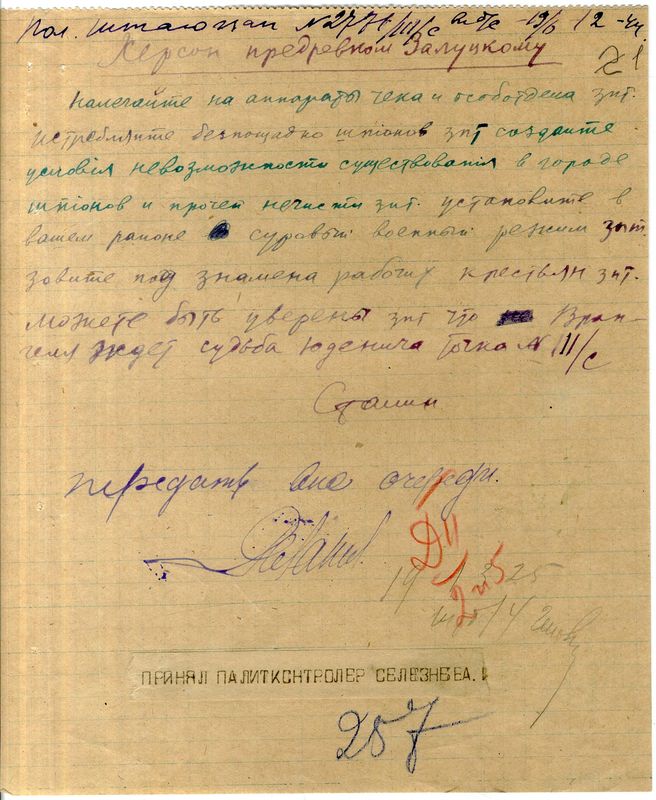 № 2776/III/с 19/6 12-44
Херсон предревком Залуцкому
Налегайте на аппараты чека и особотдела зпт.
истребляите безпощадно шпионов зпт создаите
условiя невозможности существованiя в городе
шпионов и прочеи нечисти зпт. установите в
вашем раионе суровыи военныи режим зпт
зовите под знамена рабочих крестьян зпт.
можете быть уверены зпт что Вран-
геля ждет судьба Юденича точка № III/с
Сталин
передать вне очереди.
2 ч 5
ПРИНЯЛ ПАЛИТКОНТРОЛЕР СЕЛЕЗНЕВА.
257